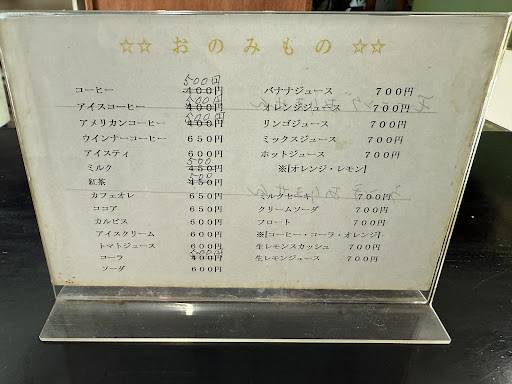 ☆☆ おのみもの ☆☆
コーヒー 400円 500円
アイスコーヒー 400円 500円
アメリカンコーヒー 400円 500円
ウインナーコーヒー 650円
アイスティ 600円
ミルク 450円 500
紅茶 450円 500
カフェオレ 650円
ココア 650円
カルピス 600円
アイスクリーム 600円
トマトジュース 600円
コーラ 400円 500円
ソーダ 600円
バナナジュース 700円
オレンジジュース 700円
リンゴジュース 700円
ミックスジュース 700円
ホットジュース 700円
※[オレンジ・レモン]
ミルクセーキ 700円
クリームソーダ 700円
フロート 700円
※[コーヒー・コーラ・オレンジ]
生レモンスカッシュ 700円
生レモンジュース 700円